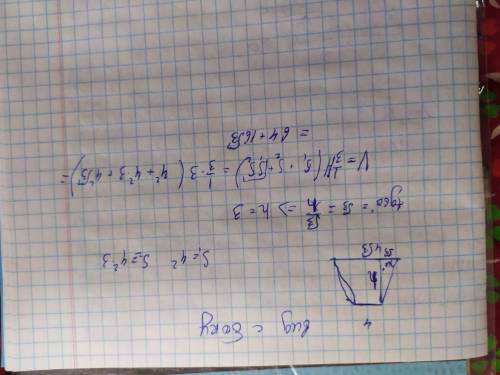 Вид с боку
4
h
√3 4√3
S₁=4² S₂=4²·3
tg60°=√3=h/√3 => h=3
V=1/3H(S₁+S₂+√S₁S₂)=1/3·3(4²+4²·3+4²√3)=
=64+16√3